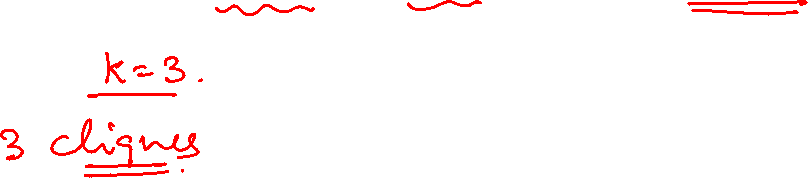 k=3.
3 cliques